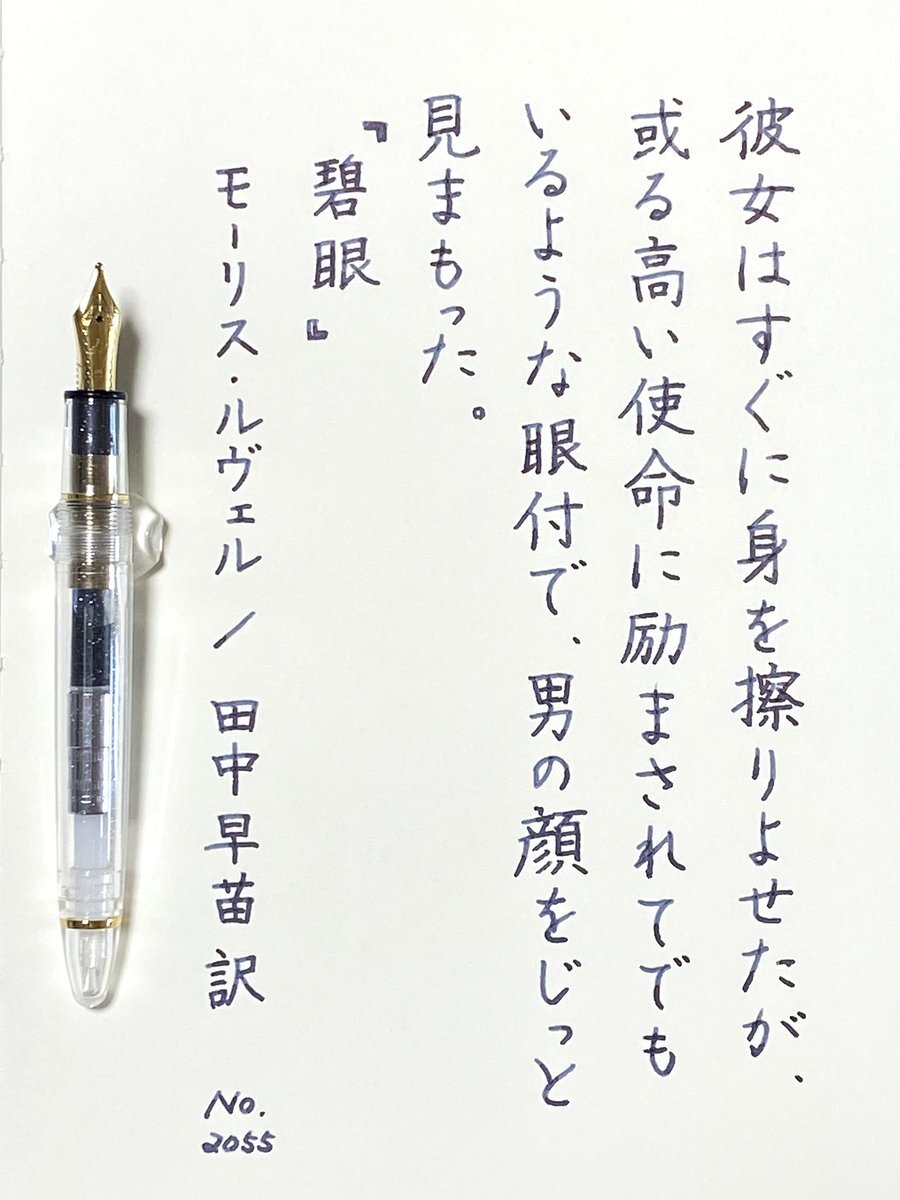 彼女はすぐに身を擦りよせたが、
或る高い使命に励まされてでも
いるような眼付で、男の顔をじっと
見まもった。
『碧眼』
モーリス・ルヴェル／ 田中早苗訳
No.
2055